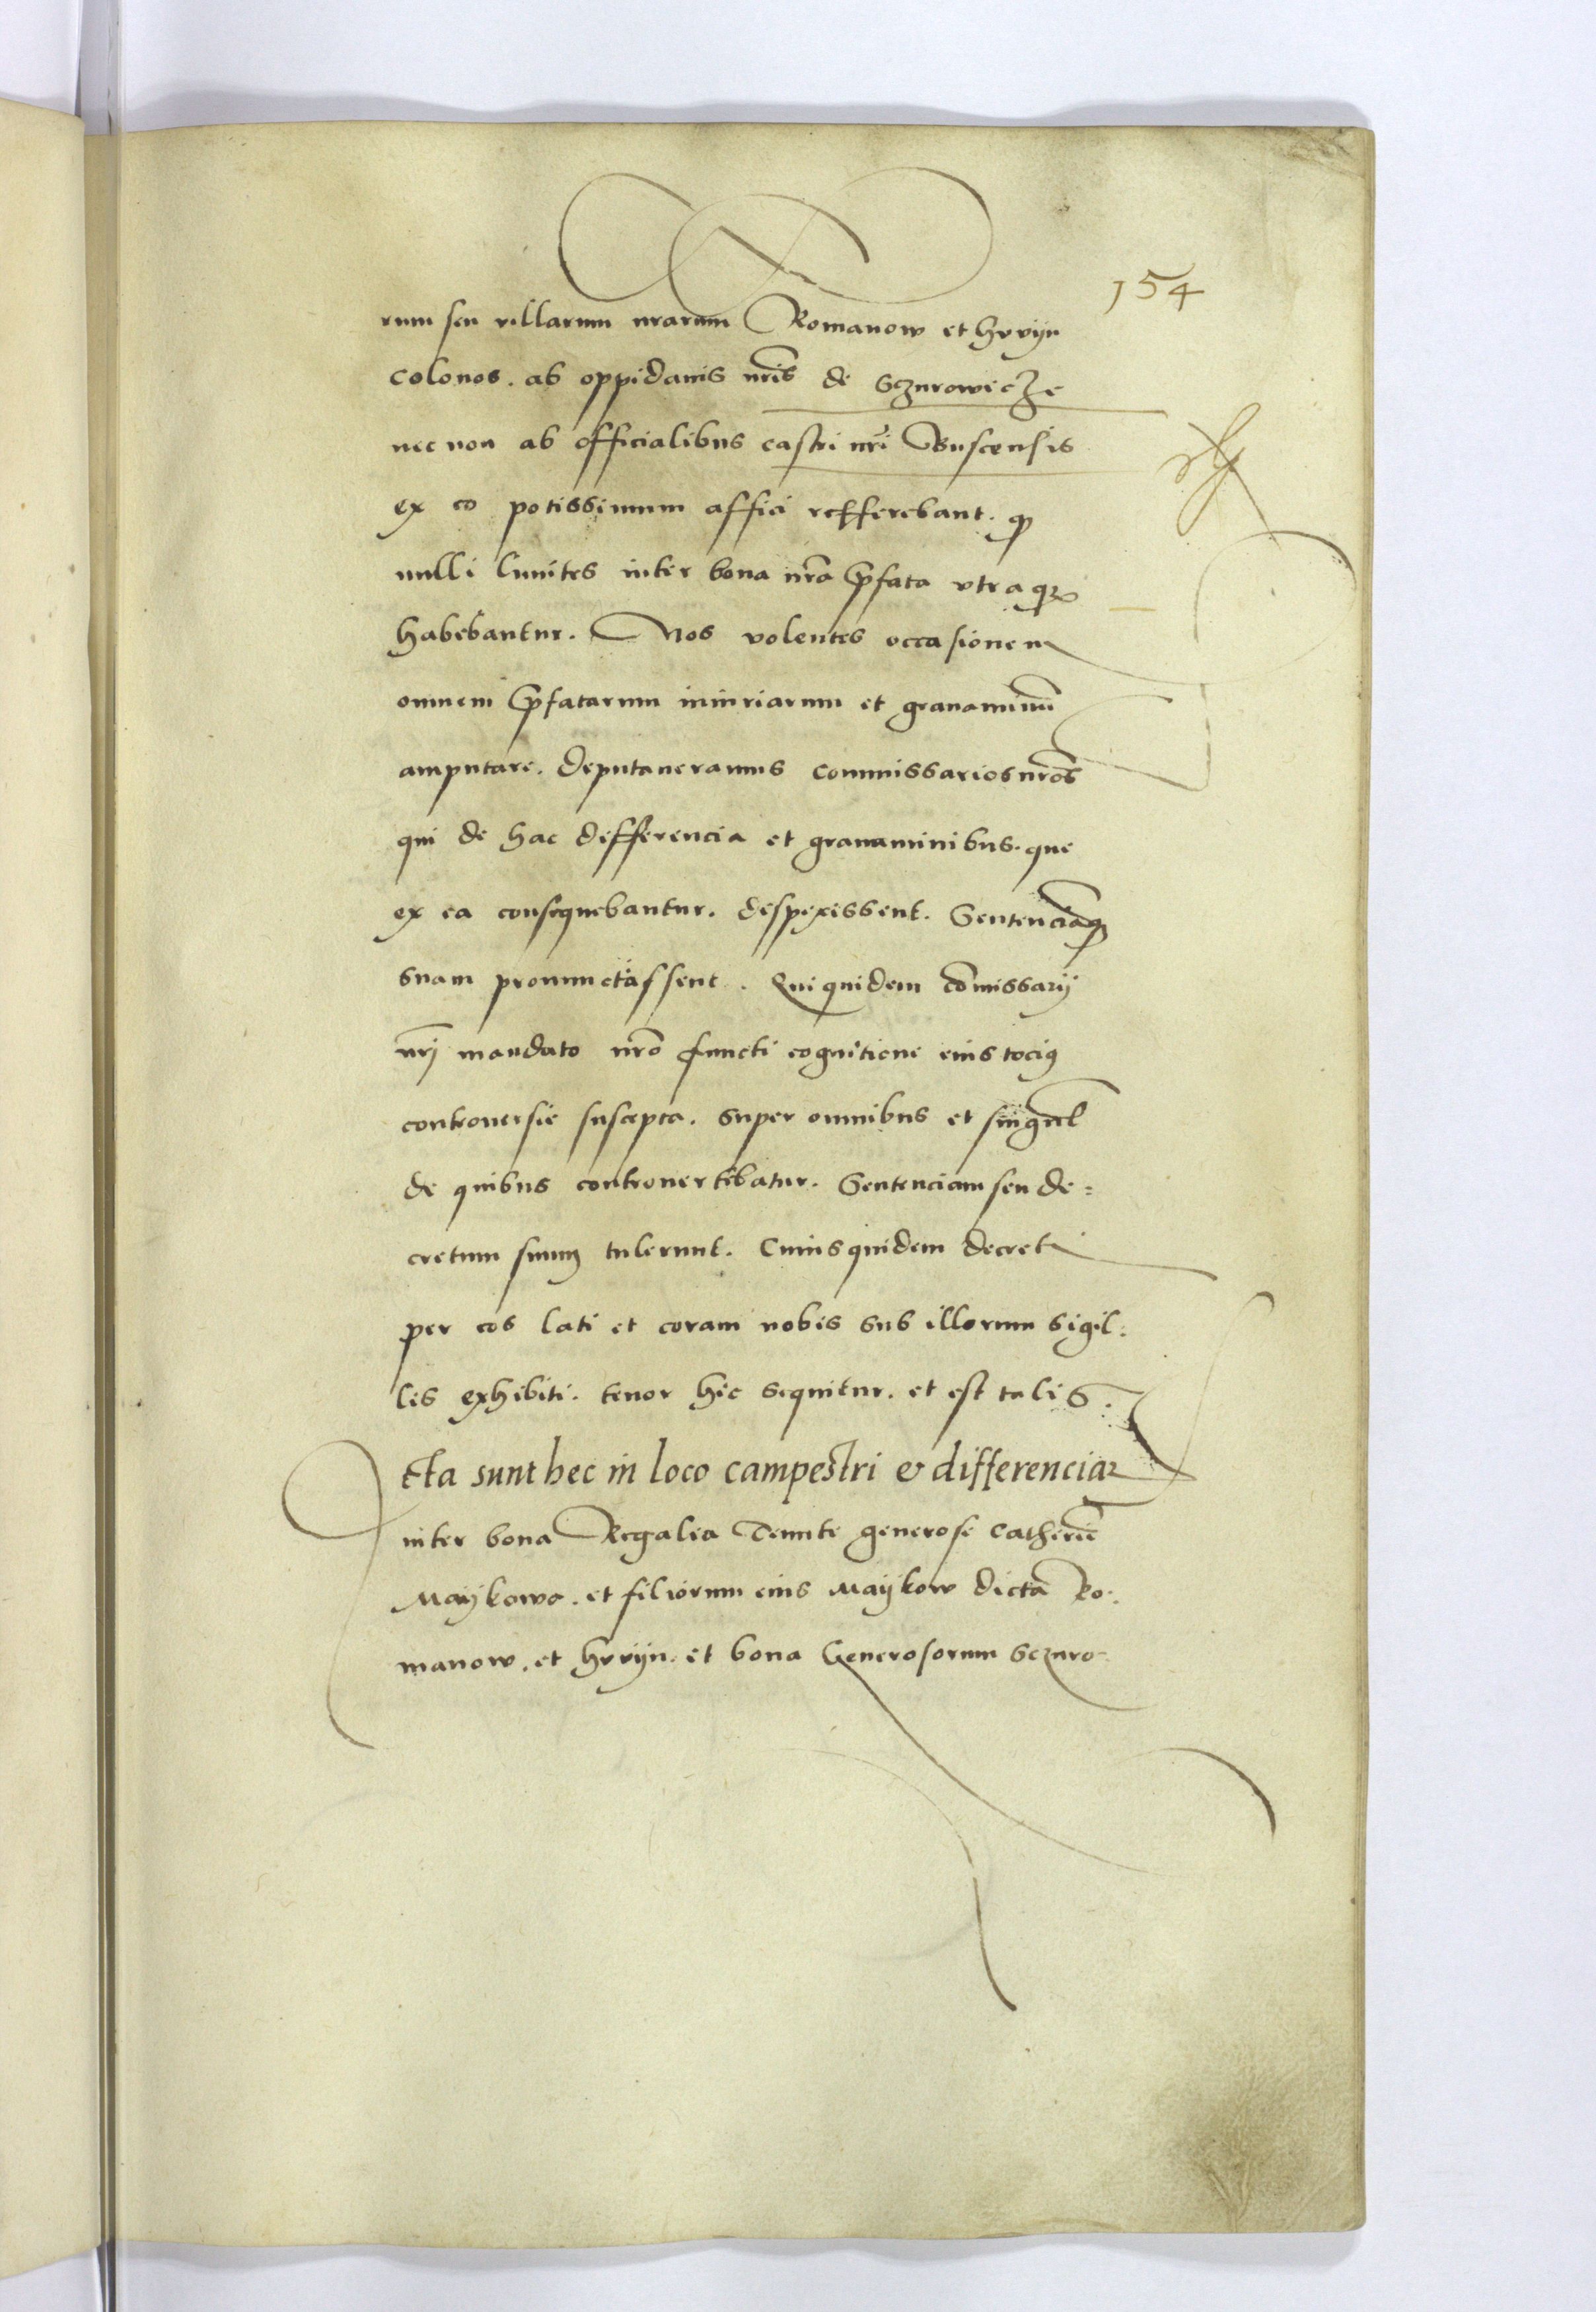 154
rum seu villarum nrarum Romanow et Hrvyn
colonos. ab oppidanis nris de Sczurowicze
nec non ab officialibus castri nri Buscensis
ex eo potissimum affici refferebant. qp
nulli limites inter bona nra pfata vtraqz
habebantur. Nos volentes occasionem
omnem pfatarum iniuriarum et grauaminu
amputare. deputaueramus commissarios nros
qui de hac differencia et grauaminibus. que
ex ea consequebantur. despexissent. Sentenciaqz
suam pronunctiassent. Qui quidem comissarij
nrj mandato nro functi cognitione eius tocig
controuersie suscepta. super omnibus et singul
de quibus controuertebatur. Sentenciam seu de=
cretum suum tulerunt. Cuius quidem decreti
per eos lati et coram nobis sub illorum sigil:
lis exhibiti. tenor hic sequitur. et est talis.
Acta sunt hec in loco campestri & differenciar
inter bona Regalia Tenute generose Catherine
Maykowa. et filiorum eius Maykow dicta Ro:
manow. et Hrvyn. et bona Generosorum Sczuro-